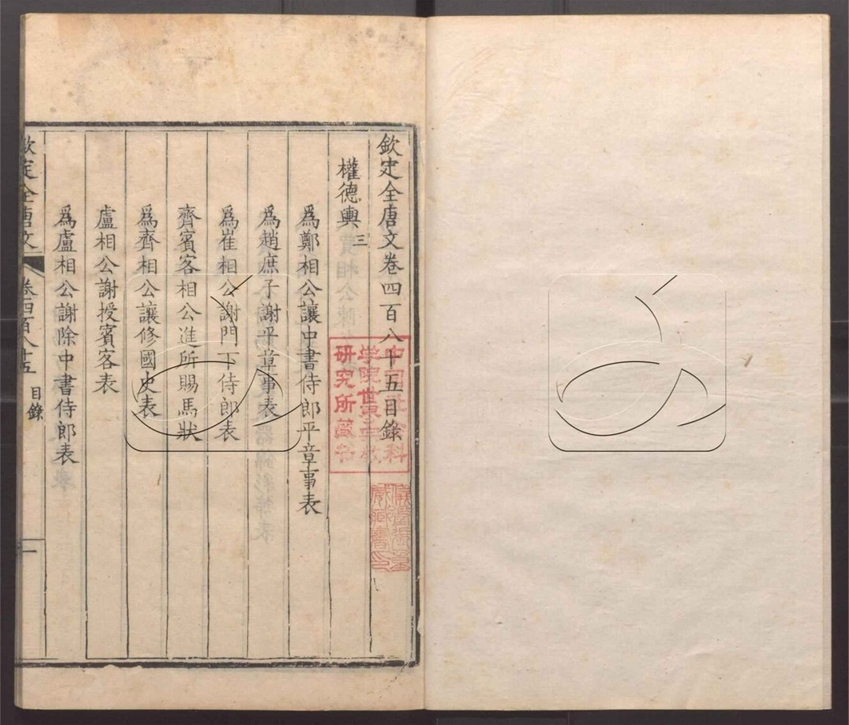 欽定全唐文卷四百八十五目錄
權德輿三
為鄭相公讓中書侍郎平章事表
為趙庶子謝平章事表
為崔相公謝門下侍郎表
齊賓客相公進所賜馬狀
為齊相公讓修國史表
盧相公謝授賓客表
為盧相公謝除中書侍郎表
欽定全唐文 卷四百八十五 目錄 一
研究所藏書